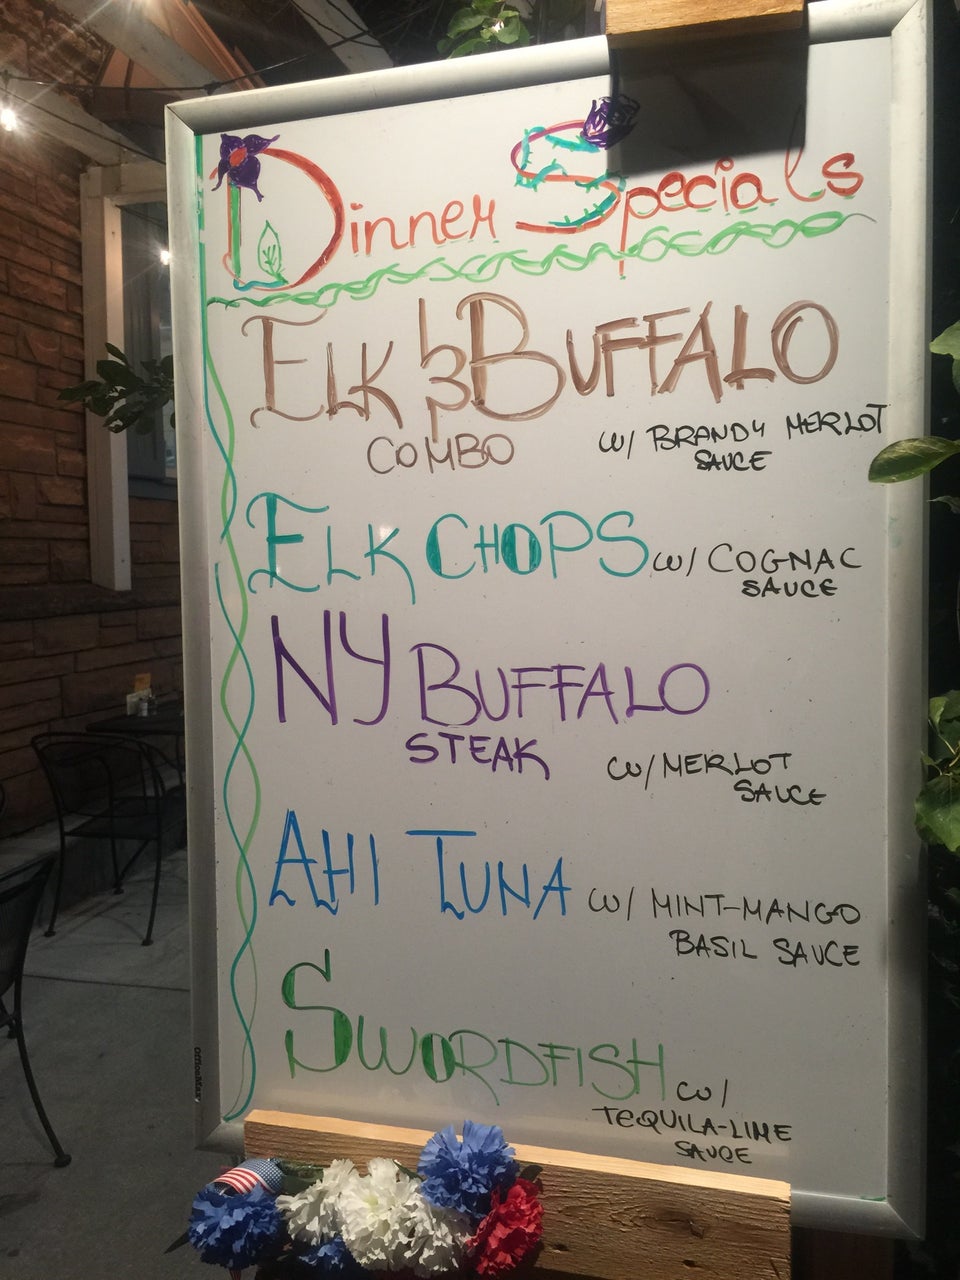 Dinner Specials
ELK & BUFFALO
COMBO
W/ BRANDY MERLOT
SAUCE
ELK CHOPS W/ COGNAC
SAUCE
NY BUFFALO
STEAK
W/ MERLOT
SAUCE
AHI TUNA W/ MINT-MANGO
BASIL SAUCE
SWORDFISH W/
TEQUILA-LIME
SAUCE
OfficeMax